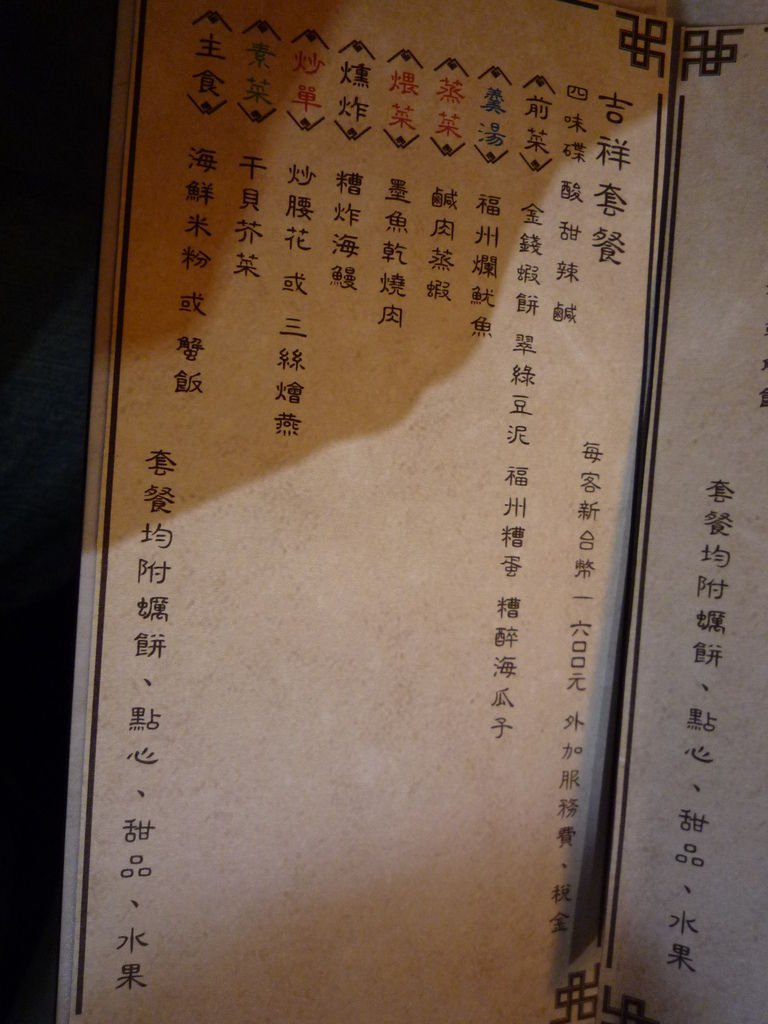 吉祥套餐
每客新台幣一六〇〇元 外加服務費、稅金
四味碟 酸 甜 辣 鹹
前菜 金錢蝦餅 翠綠豆泥 福州糟蛋 糟醉海瓜子
羹湯 福州爛魷魚
蒸菜 鹹肉蒸蝦
煨菜 墨魚乾燒肉
燻炸 糟炸海鰻
炒單 炒腰花 或 三絲燴燕
素菜 干貝芥菜
主食 海鮮米粉 或 蟹飯
套餐均附蠣餅、點心、甜品、水果
套餐均附蠣餅、點心、甜品、水果